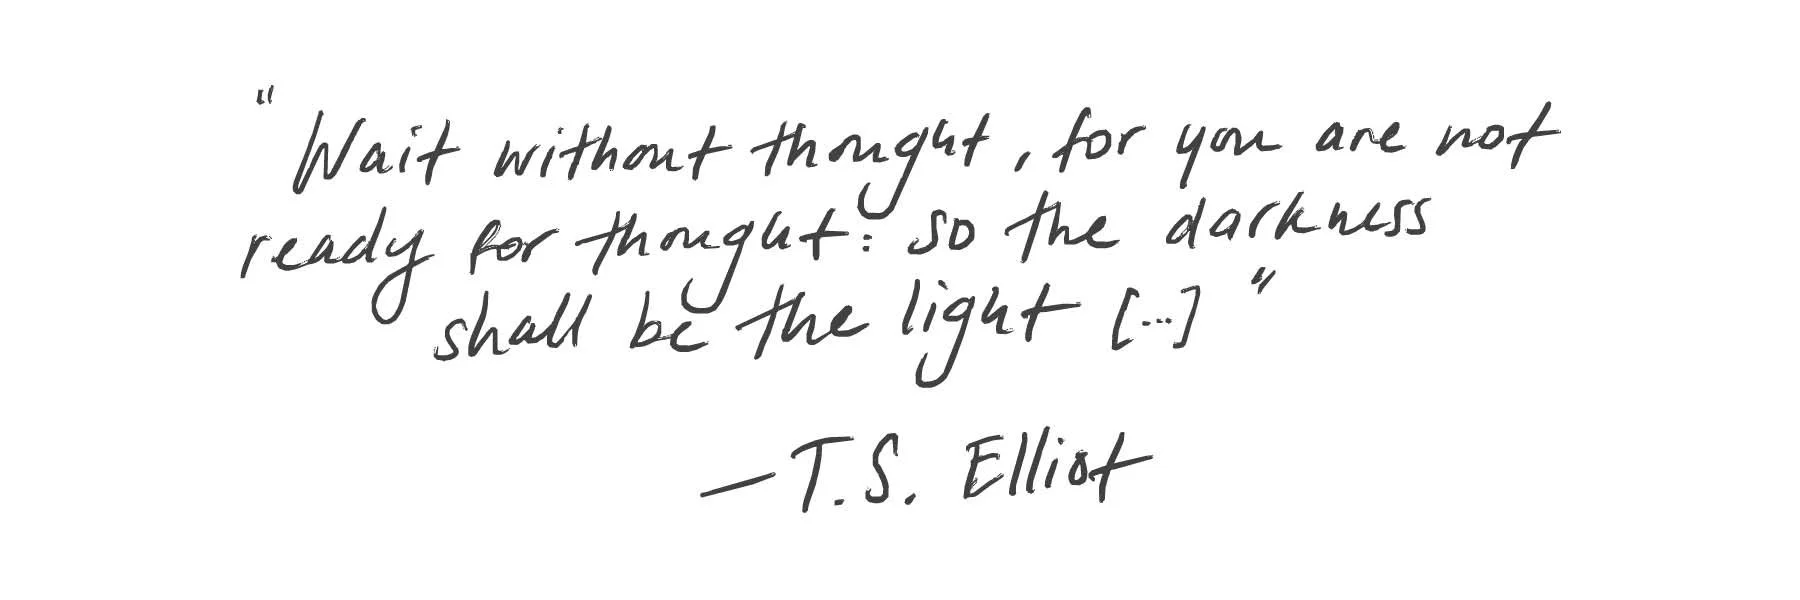 "Wait without thought, for you are not
ready for thought: so the darkness
shall be the light [...]"
—T.S. Elliot